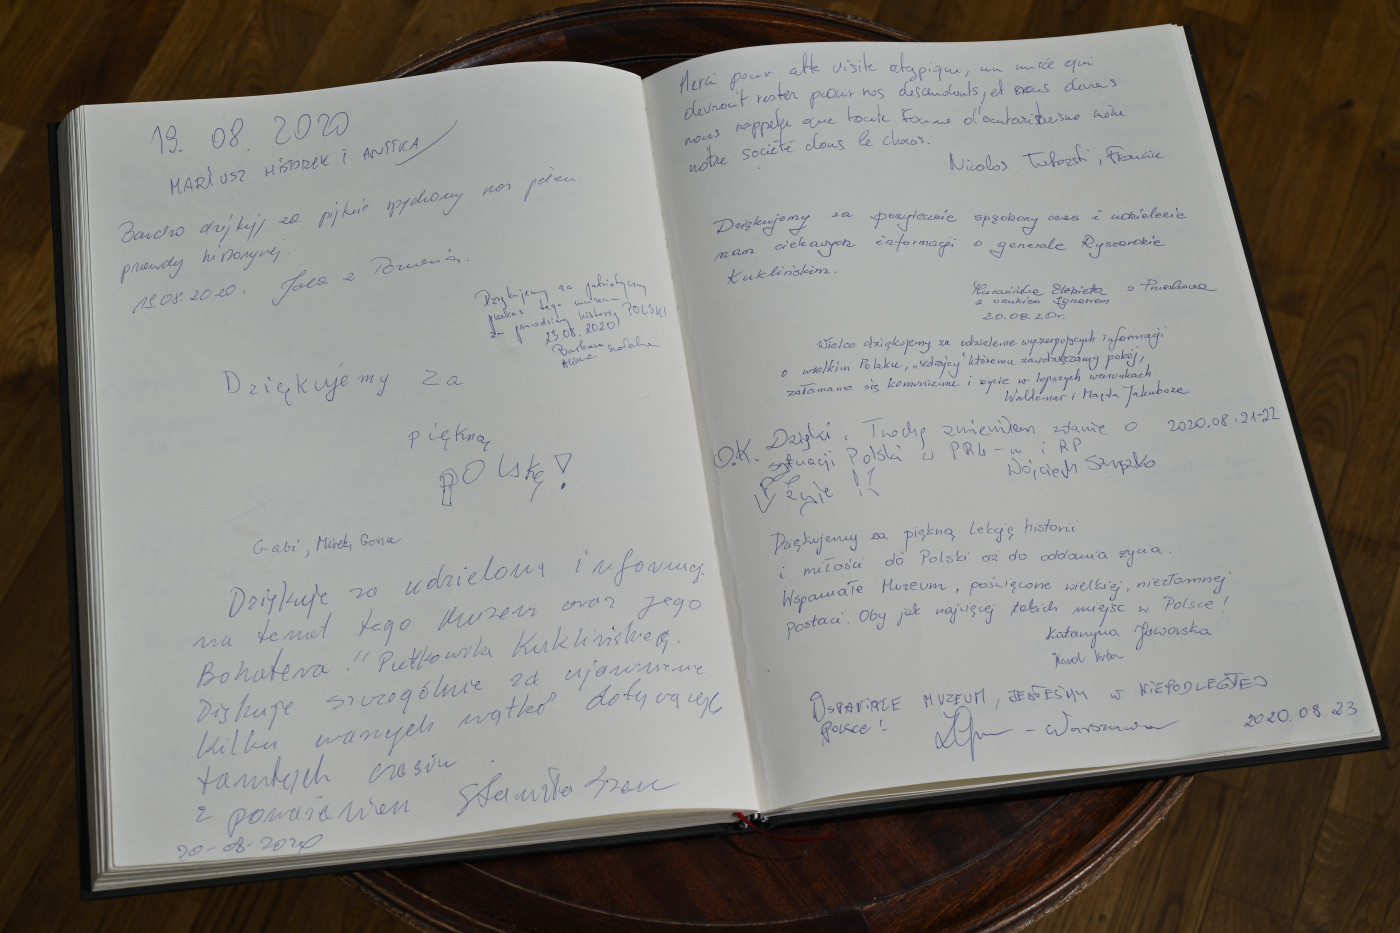 19. 08. 2020
MARIUSZ HISTOREK i ANITKA
Bardzo dziękuję za pięknie spędzony czas pełen
prawdy historycznej.
19.08.2020. Jola z Poznania.
Dziękujemy za patriotyczny
przekaz tego muzeum
za prawdziwą historię POLSKI
23.08.2020
Barbara
Anna
Dziękujemy za
piękną
POLSKĘ!
Gabi, Mirek,
Dziękuje za udzieloną informację
na temat tego Muzeum oraz jego
Bohatera !! Pułkownika Kuklińskiego.
Dziękuje szczególnie za ujawnienie
kilku ważnych wątków dotyczących
tamtych czasów.
z poważaniem Stanisław
20-08-2020
Merci pour cette visite atypique, un musée qui
devrait rester pour nos descendants, et nous devons
nous rappeler que toute forme d'autoritarisme
notre société dans le chaos.
Nicolas, France
Dziękujemy za pożytecznie spędzony czas i udzielenie
nam ciekawych informacji o generale Ryszardzie
Kuklińskim.
Elżbieta z
z wnukiem Ignacem
20.08.20r.
Wielce dziękujemy za udzielenie wyczerpujących informacji
o wielkim Polaku, "zdrajcy" któremu zawdzięczamy pokój,
załamanie się komunizmu i życie w lepszych warunkach
Waldemar i Magda
O.K. Dzięki. Trochę zmieniłem zdanie o 2020.08.21-22
sytuacji Polski w PRL-u i RP
Wojciech
Żyje !!
Dziękujemy za piękną lekcję historii
i miłości do Polski aż do oddania życia.
Wspaniałe Muzeum, poświęcone wielkiej, niezłomnej
postaci. Oby jak najwięcej takich miejsc w Polsce!
Katarzyna Jaworska
Karol
WSPANIAŁE MUZEUM, JESTEŚMY W NIEPODLEGŁEJ
POLSCE!
- Warszawa 2020.08.23